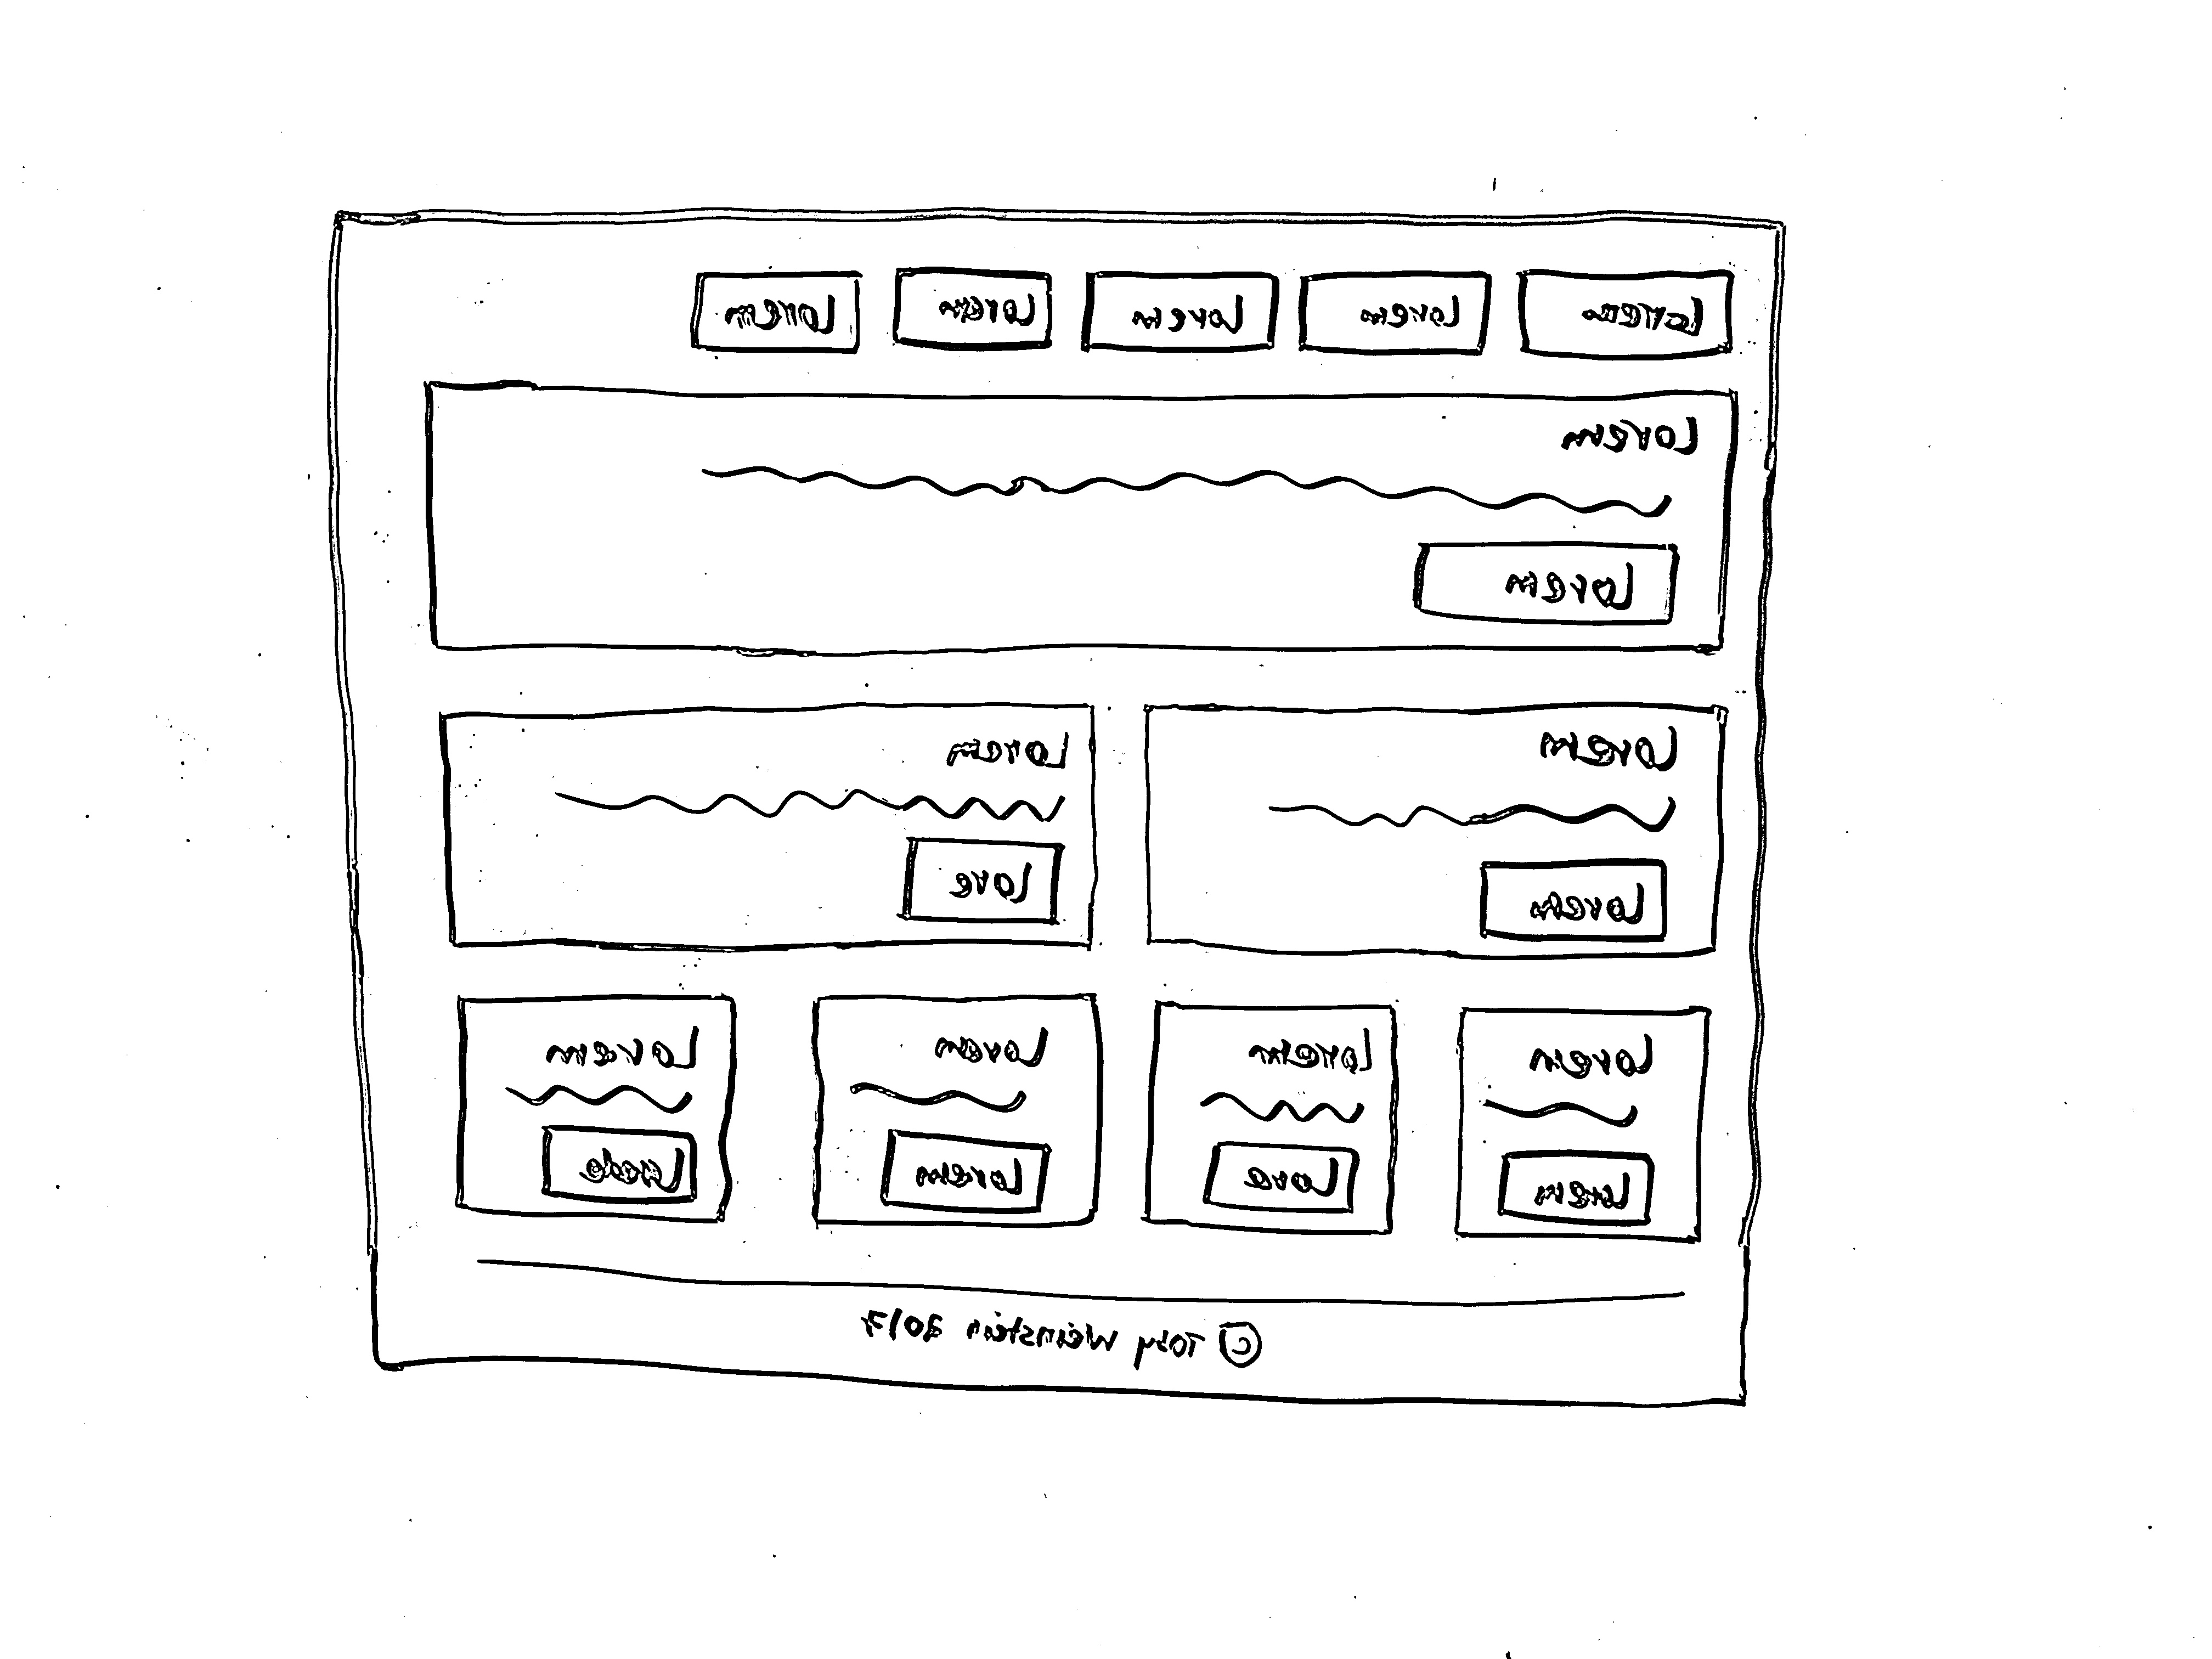 Lorem Lorem Lorem Lorem Lorem
Lorem
Lorem
Lorem Lorem
Lorem Love
Lorem Lorem Lorem Lorem
Lorem Love Lorem
© Toby Weinstein 2017